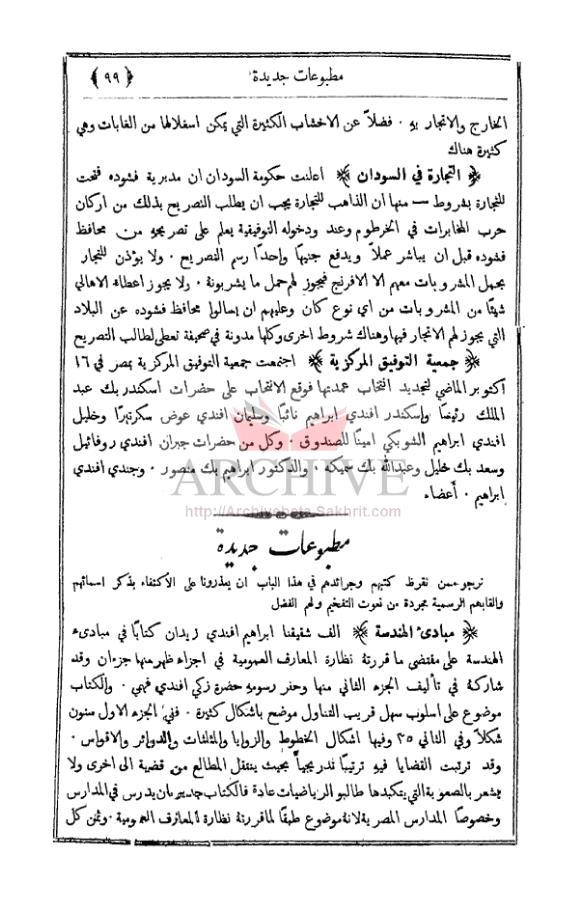 مطبوعات جديدة
﴿ ٩٩ ﴾
الخارج والاتجار به . فضلاً عن الاخشاب الكثيرة التي يمكن استغلالها من الغابات وهي
كثيرة هناك
﴿ التجارة في السودان ﴾ اعلنت حكومة السودان ان مديرية فشوده فتحت
للتجارة بشروط — منها ان الذاهب للتجارة يجب ان يطلب التصريح بذلك من اركان
حرب المخابرات في الخرطوم وعند ودخوله التوفيقية يعلم على تصريحه من محافظ
فشوده قبل ان يباشر عملاً ويدفع جنيهاً واحدًا رسم التصريح . ولا يؤذن للتجار
بحمل المشروبات معهم الا الافرنج فيجوز لهم حمل ما يشربونة . ولا يجوز اعطاء الاهالي
شيئًا من المشروبات من اي نوع كان وعليهم ان يسالوا محافظ فشوده عن البلاد
التي يجوز لهم الاتجار فيها وهناك شروط اخرى وكلها مدونة في صحيفة تعطى لطالب التصريح
﴿ جمعية التوفيق المركزية ﴾ اجتمعت جمعية التوفيق المركزية بمصر في ١٦
اكتوبر الماضي لتجديد انتخاب عمدتها فوقع الانتخاب على حضرات اسكندر بك عبد
الملك رئيسًا واسكندر افندي ابراهيم نائبًا وسليمان افندي عوض سكرتيرًا وخليل
افندي ابراهيم الشوبكي امينًا للصندوق . وكل من حضرات جبران افندي روفائيل
وسعد بك خليل وعبدالله بك سميكه . والدكتور ابراهيم بك منصور . وجندي افندي
ابراهيم . أعضاء
ARCHIVE
http://Archivebeta.Sakhrit.com
مطبوعات جديدة
نرجو ممن نقرظ كتبهم وجرائدهم في هذا الباب ان يعذرونا على الأكتفاء بذكر اسمائهم
والقابهم الرسمية مجردة من نعوت التفخيم ولهم الفضل
﴿ مبادئ الهندسة ﴾ الف شقيقنا ابراهيم افندي زيدان كتابًا في مبادئ
الهندسة على مقتضى ما قررتة نظارة المعارف العمومية في اجزاء ظهر منها جزءان وقد
شاركة في تأليف الجزء الثاني منها وحفر رسومه حضرة زكي افندي فهمي . والكتاب
موضوع على اسلوب سهل قريب التناول موضح باشكال كثيرة . ففي الجزء الاول ستون
شكلاً وفي الثاني ٣٥ وفيها اشكال الخطوط والزوايا والمثلثات والدوائر والاقواس .
وقد ترتبت القضايا فيه ترتيبًا تدريجياً بحيث ينتقل المطالع من قضية الى اخرى ولا
يشعر بالصعوبة التي يتكبدها طالبو الرياضيات عادة فالكتاب جدير بان يدرس في المدارس
وخصوصًا المدارس المصرية لانة موضوع طبقًا لما قررتة نظارة المعارف العمومية . وثمن كل